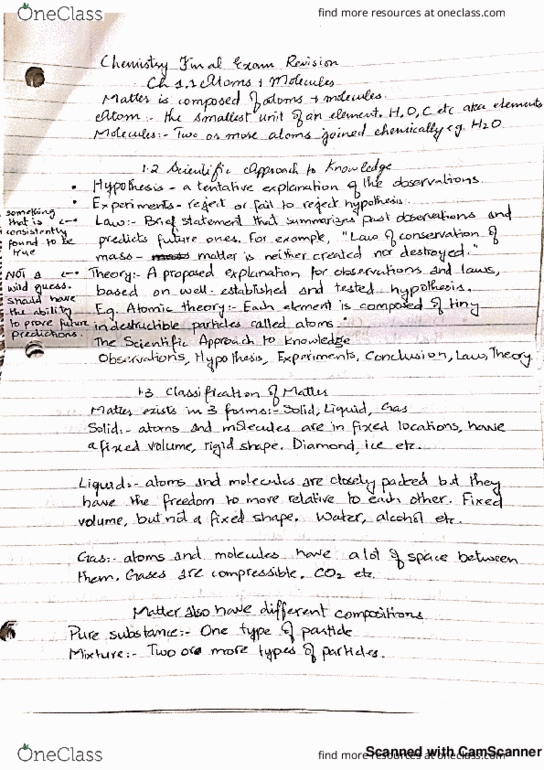 OneClass
find more resources at oneclass.com
Chemistry Final Exam Revision
Ch 1.1 Atoms + Molecules
Matter is composed of atoms + molecules.
Atom:- the smallest unit of an element. H, O, C etc aka elements
Molecules:- Two or more atoms joined chemically eg. H2O
1.2 Scientific Approach to Knowledge
• Hypothesis - a tentative explanation of the observations.
• Experiments - reject or fail to reject hypothesis.
something that is consistently found to be true
Law:- Brief statement that summarizes past observations and
predicts future ones. For example, "Law of conservation of
mass - matter is neither created nor destroyed."
Not a wild guess. should have the ability to prove future predictions.
Theory:- A proposed explanation for observations and laws,
based on well-established and tested hypothesis.
Eg. Atomic theory:- Each element is composed of tiny
indestructible particles called atoms.
The Scientific Approach to Knowledge
Observations, Hypothesis, Experiments, Conclusion, Law, Theory
1.3 Classification of Matter
Matter exists in 3 forms:- Solid, Liquid, Gas
Solid:- atoms and molecules are in fixed locations, have
a fixed volume, rigid shape. Diamond, ice etc.
Liquid:- atoms and molecules are closely packed but they
have the freedom to move relative to each other. Fixed
volume, but not a fixed shape. Water, alcohol etc.
Gas:- atoms and molecules have a lot of space between
them. Gases are compressible. CO2 etc.
Matter also have different compositions
Pure substance:- One type of particle
Mixture:- Two or more types of particles.
OneClass
find more resources at oneclass.com
Scanned with CamScanner